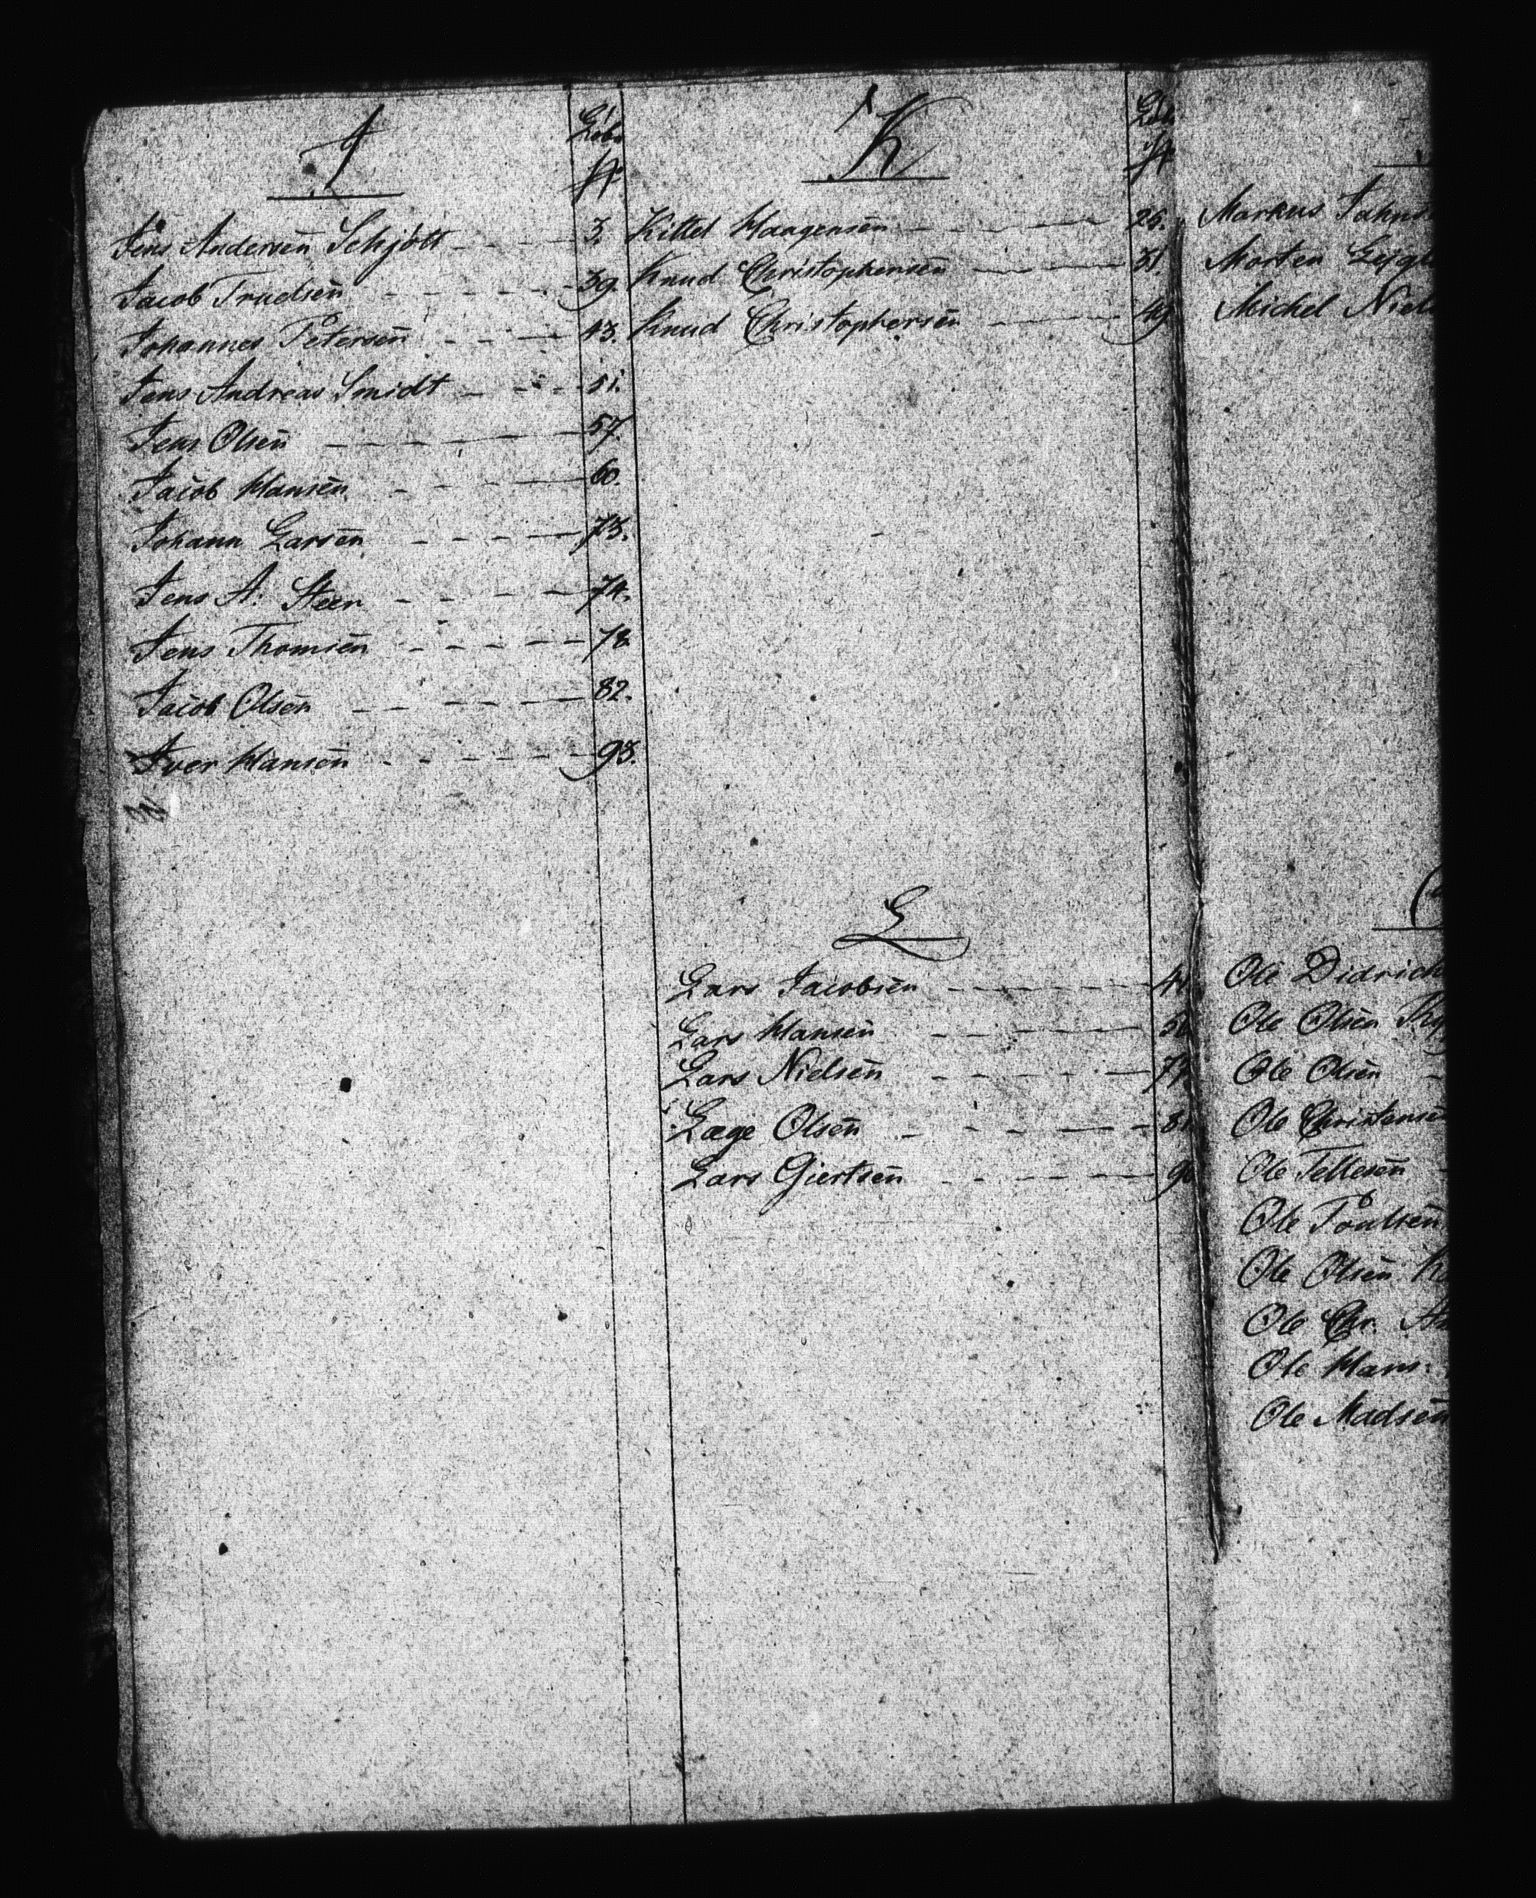 J
Löbe
No
Jens Andersen Schjött 3.
Jacob Truelsen 39.
Johannes Petersen 43.
Jens Andreas Smidt 51.
Jens Olsen 57.
Jacob Hansen 60.
Johann Larsen 73.
Jens A: Steen 74.
Jens Thomsen 78
Jacob Olsen 82.
Iver Hansen 93.
K
Löbe
No
Kittel Haagensen 26.
Knud Christophersen 31.
Knud Christophersen 49
L
Lars Jacobsen
Lars Hansen
Lars Nielsen
Lage Olsen
Lars Giertsen
Markus
Morten
Michel
Ole
Ole Olsen
Ole Olsen
Ole Christensen
Ole Tellesen
Ole Poulsen
Ole Olsen
Ole Chr.
Ole Hans:
Ole Madsen